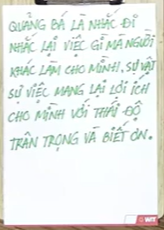 QUẢNG BÁ LÀ NHẮC ĐI
NHẮC LẠI VIỆC GÌ MÀ NGƯỜI
KHÁC LÀM CHO MÌNH, SỰ VẬT
SỰ VIỆC MANG LẠI LỢI ÍCH
CHO MÌNH VỚI THÁI ĐỘ
TRÂN TRỌNG VÀ BIẾT ƠN.